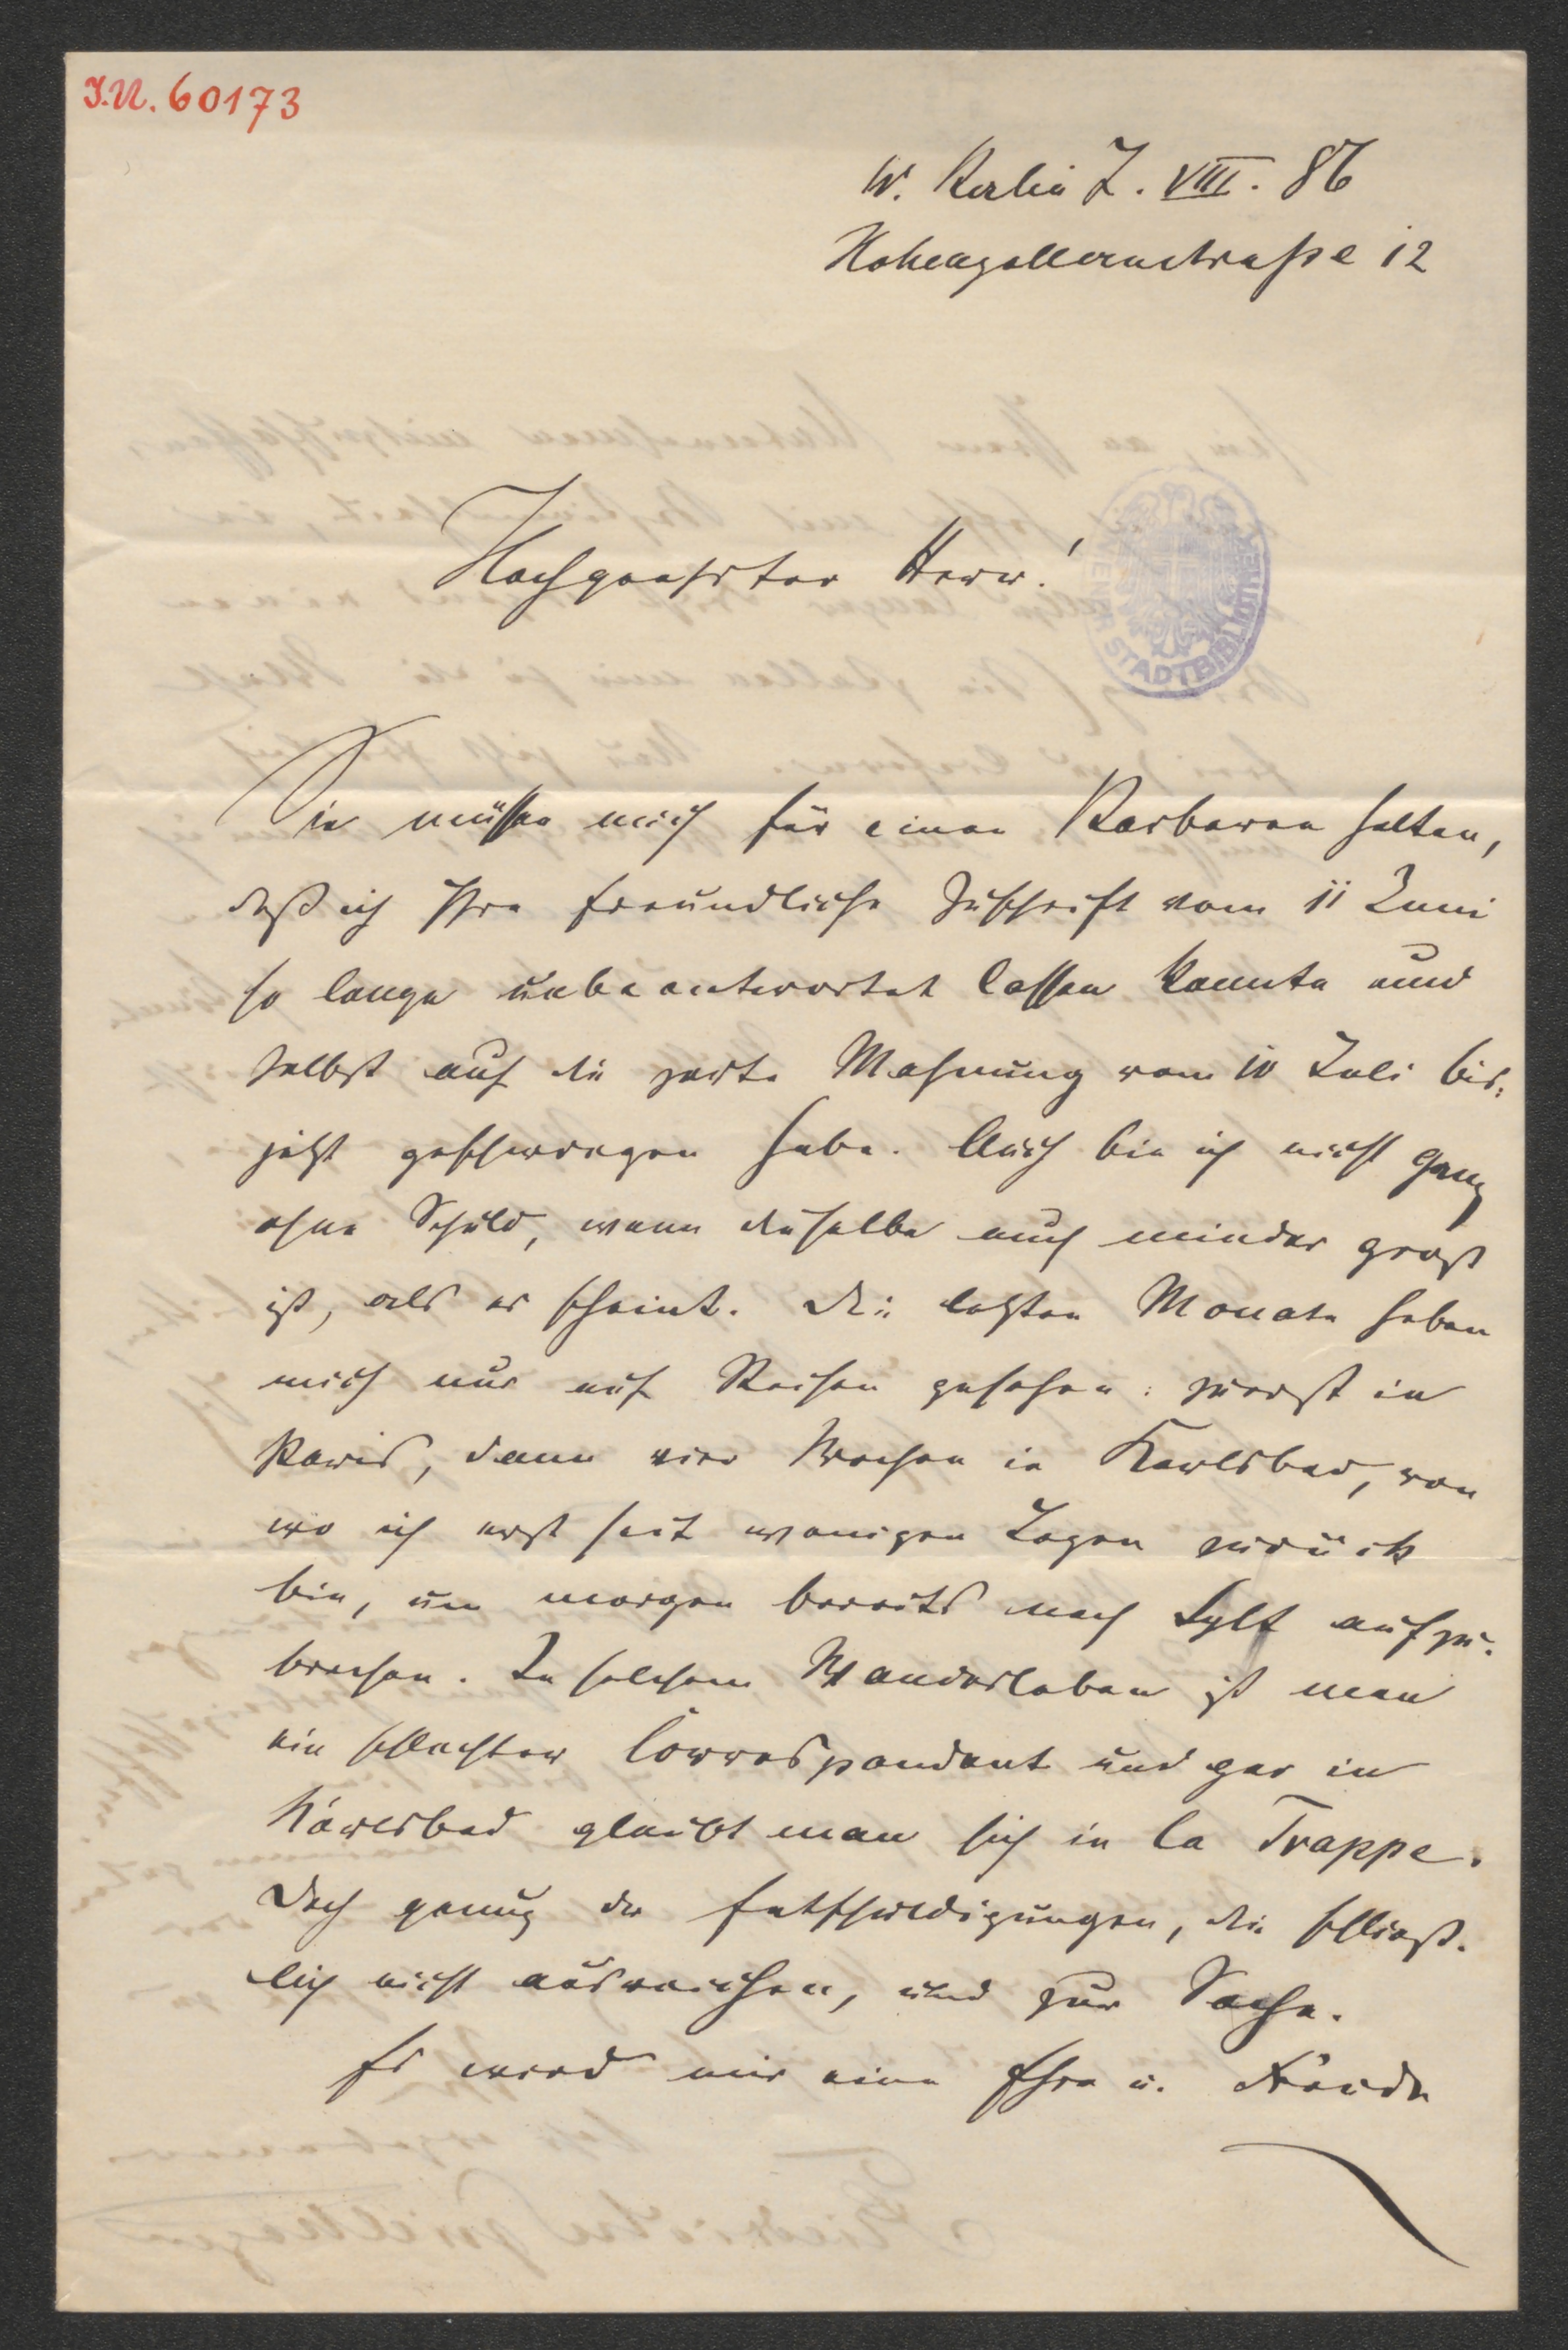 I.N. 60173
W. Berlin 7. VIII. 86
Hohenzollernstraße 12
Hochgeehrter Herr!
WIENER STADTBIBLIOTHEK
Sie müssen mich für einen Barbaren halten,
daß ich Ihre freundliche Zuschrift vom 11 Juni
so lange unbeantwortet lassen konnte und
selbst auf die zarte Mahnung vom 10 Juli bis-
jetzt geschwiegen habe. Auch bin ich nicht ganz
ohne Schuld, wenn dieselbe auch minder groß
ist, als es scheint. Die letzten Monate haben
mich nur auf Reisen gesehen: zuerst in
Paris, dann vier Wochen in Karlsbad, von
wo ich erst seit wenigen Tagen zurück
bin, um morgen bereits nach Sylt aufzu-
brechen. In solchem Wanderleben ist man
ein schlechter Correspondent und gar in
Karlsbad glaubt man sich in la Trappe.
Doch genug der Entschuldigungen, die schließ-
lich nicht ausreichen, und zur Sache.
Es wird mir eine Ehre u. Freude